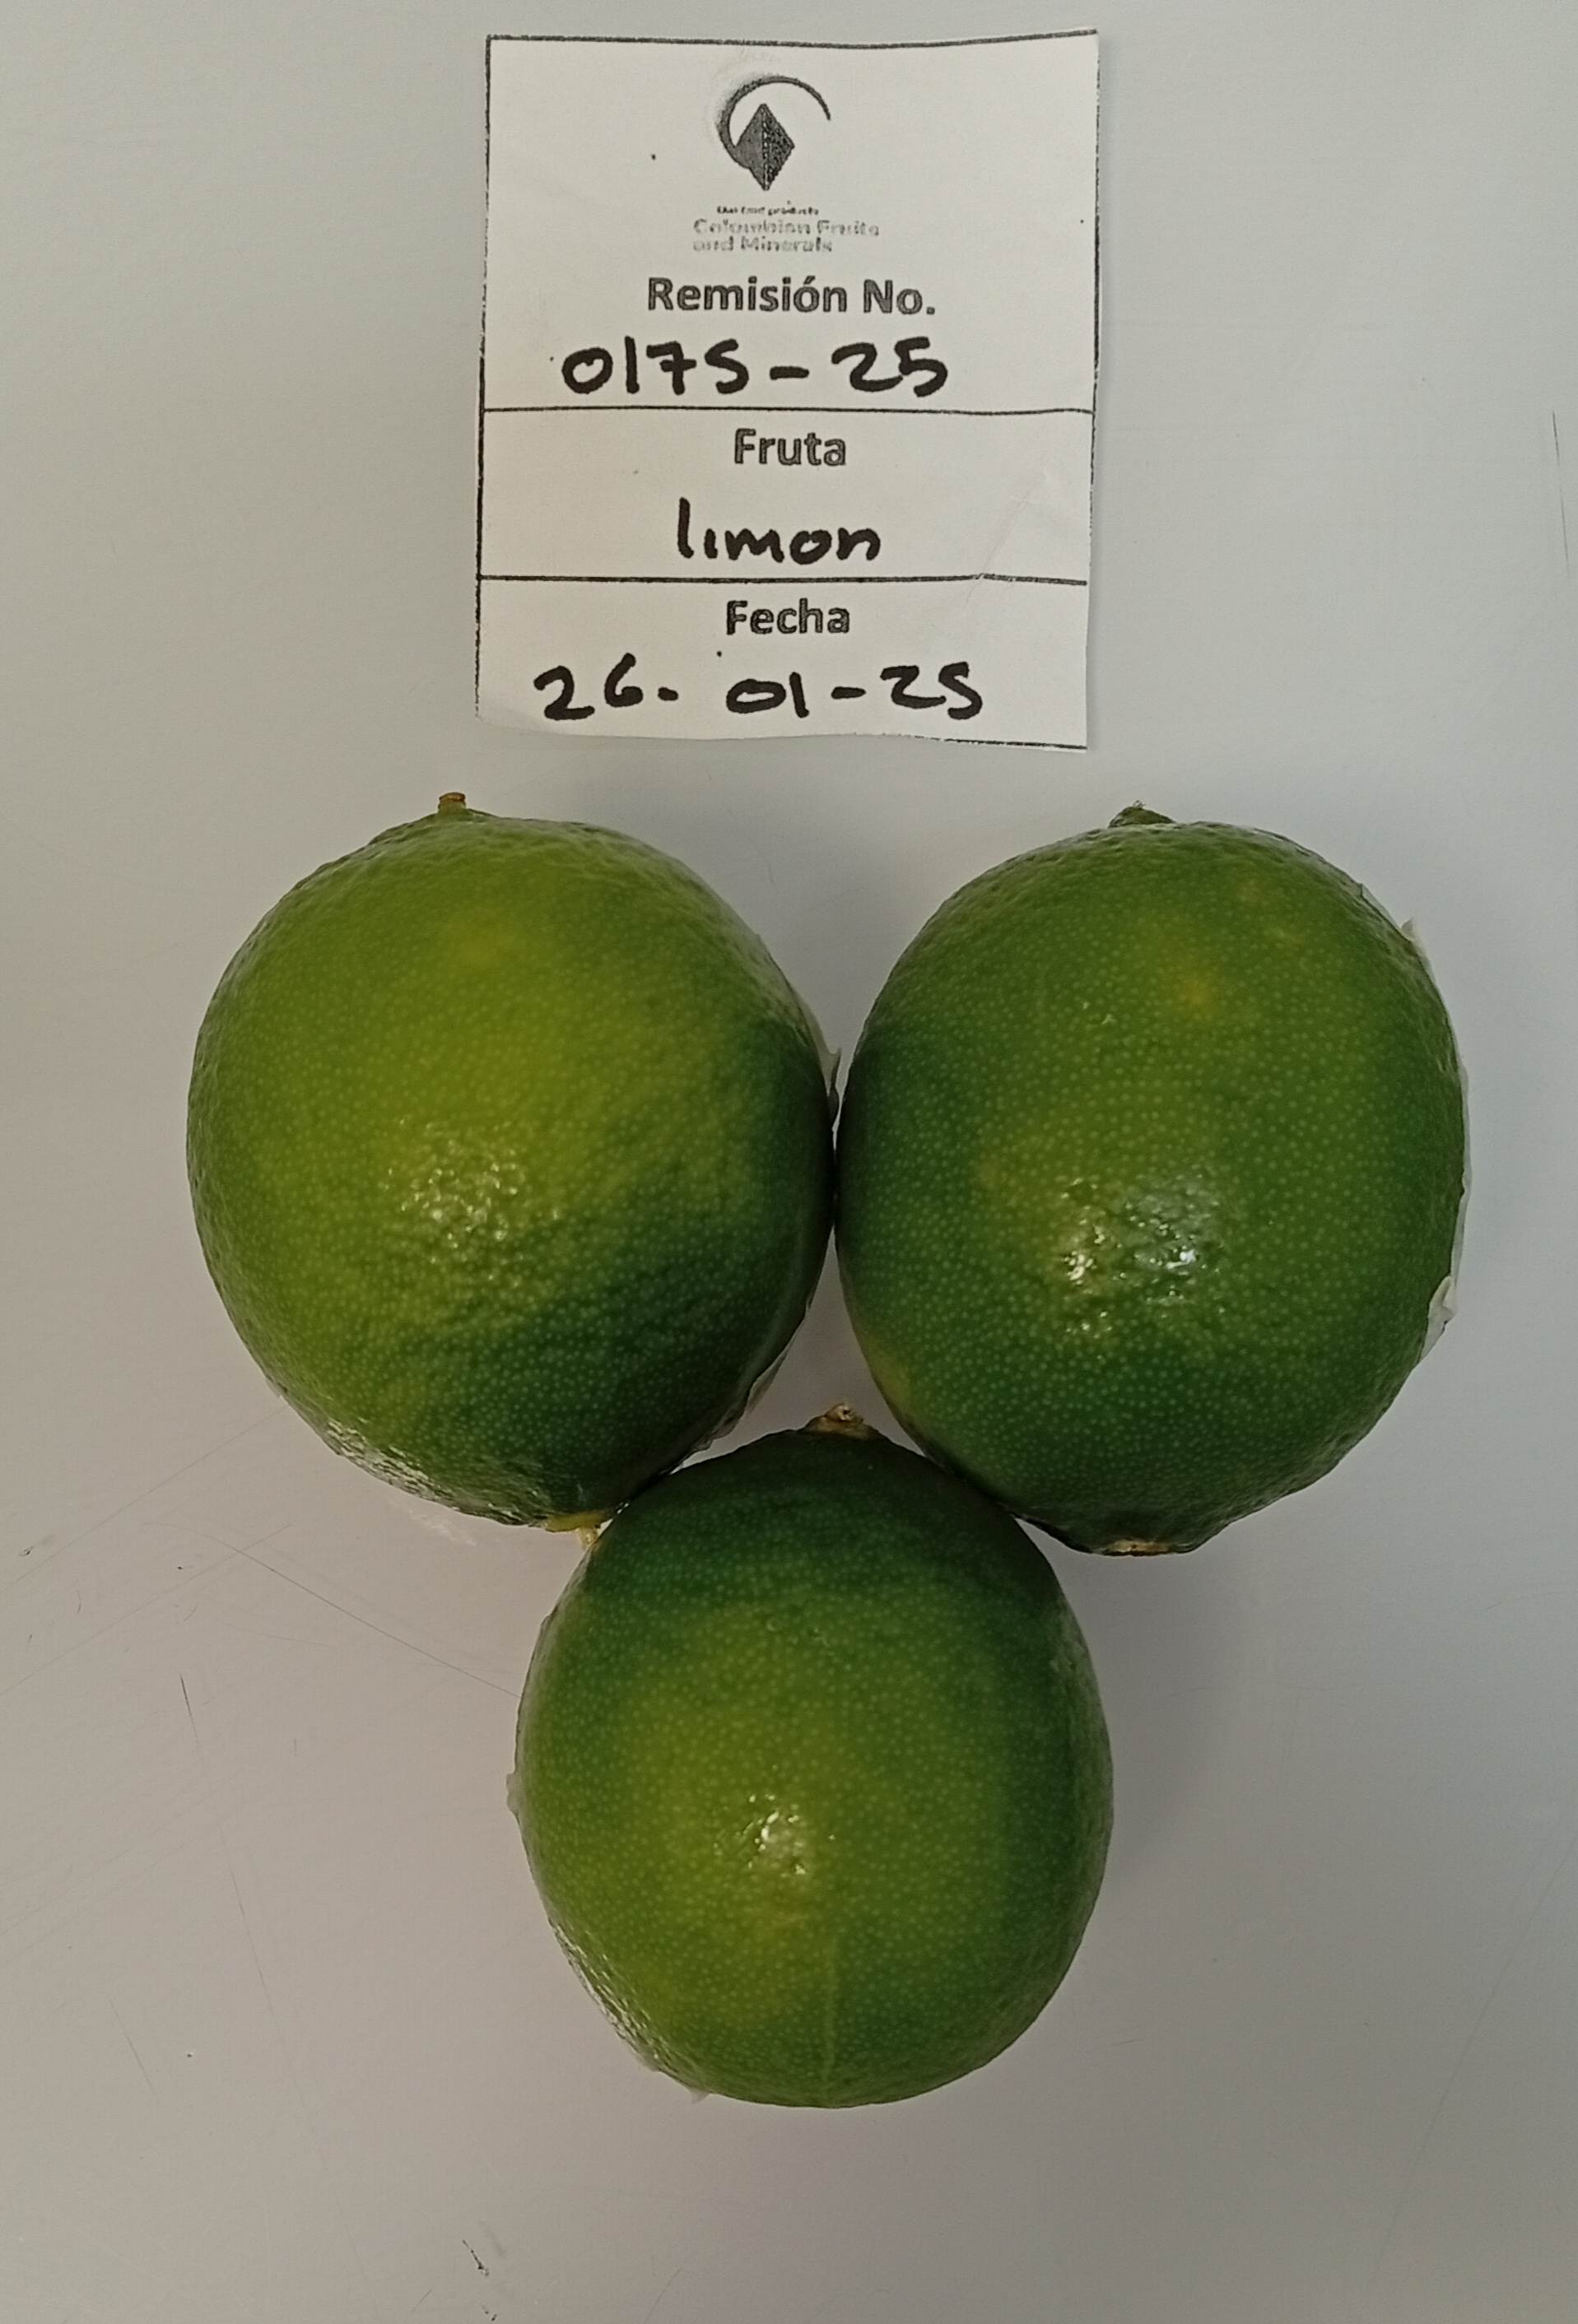 Colombian Fruits
and Minerals
Remisión No.
0175-25
Fruta
limon
Fecha
26-01-25